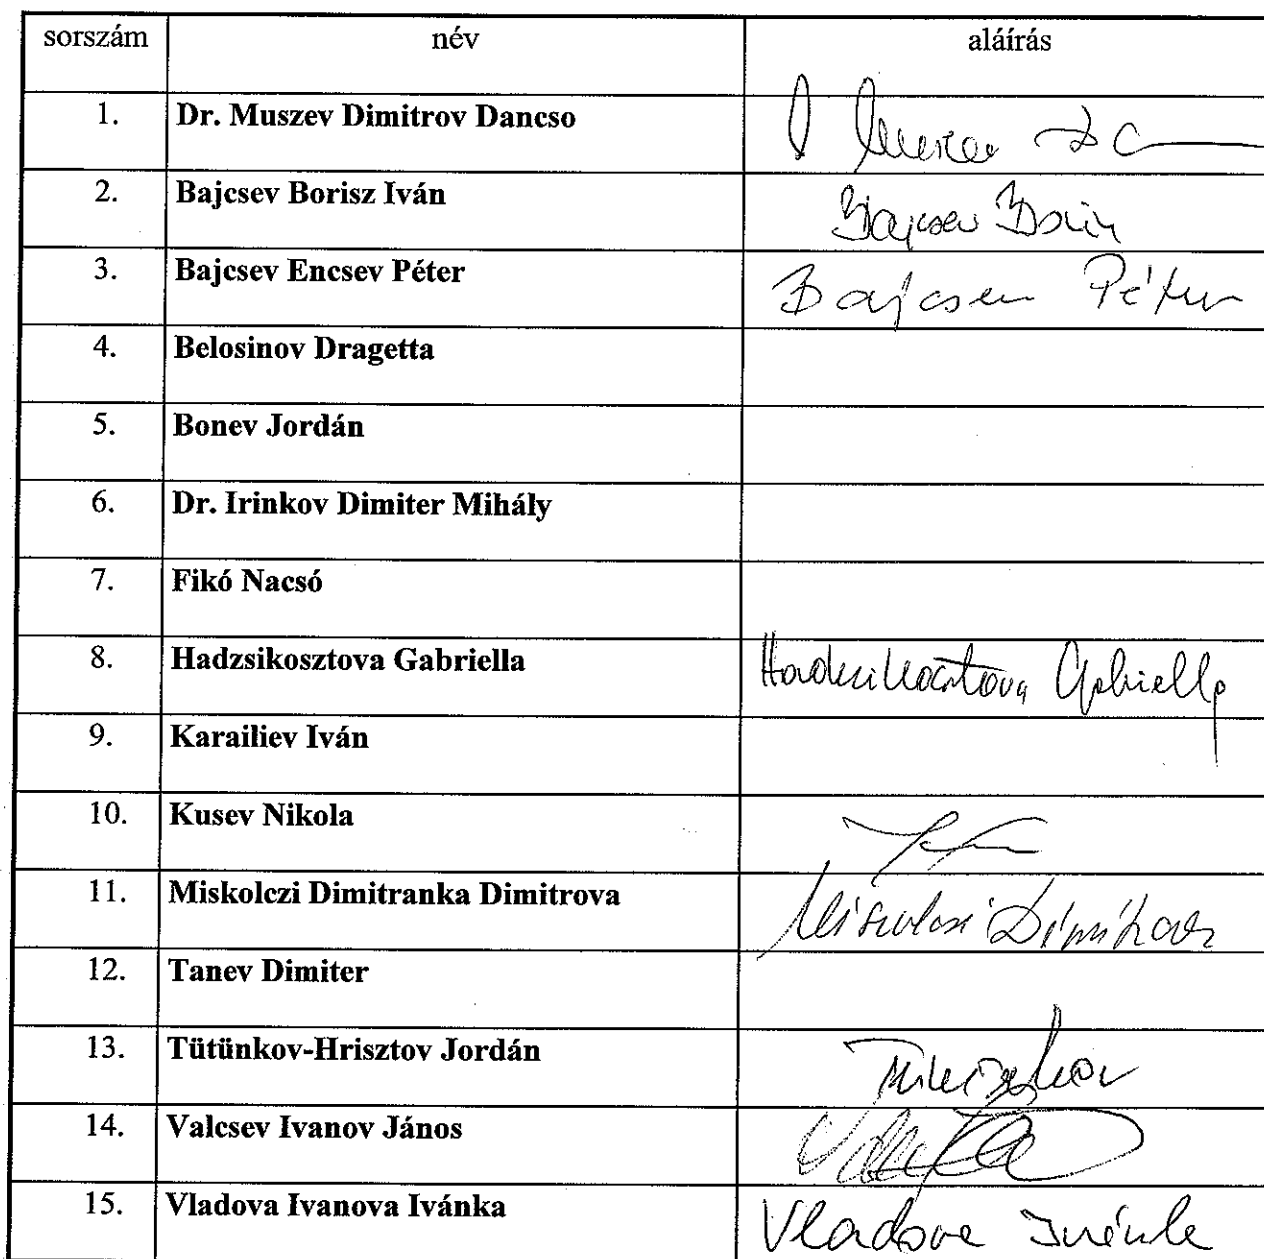 sorszám név aláírás
1. Dr. Muszev Dimitrov Dancso
2. Bajcsev Borisz Iván Bajcsev
3. Bajcsev Encsev Péter Bajcsev Péter
4. Belosinov Dragetta
5. Bonev Jordán
6. Dr. Irinkov Dimiter Mihály
7. Fikó Nacsó
8. Hadzsikosztova Gabriella Hadzsikosztova Gabriella
9. Karailiev Iván
10. Kusev Nikola
11. Miskolczi Dimitranka Dimitrova
12. Tanev Dimiter
13. Tütünkov-Hrisztov Jordán
14. Valcsev Ivanov János
15. Vladova Ivanova Ivánka Vladova Ivánka